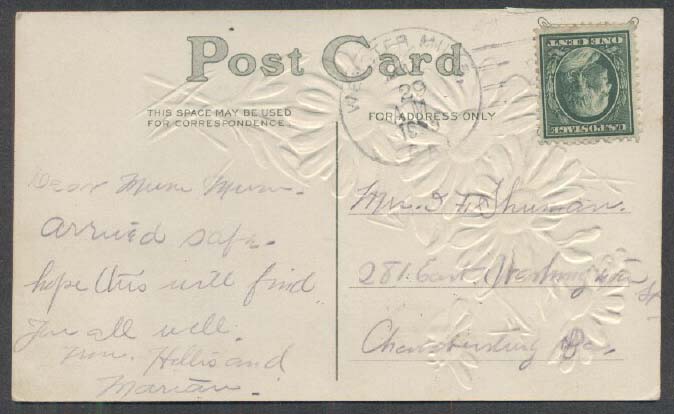 Post Card
THIS SPACE MAY BE USED
FOR CORRESPONDENCE.
FOR ADDRESS ONLY
29
U.S. POSTAGE
ONE CENT
Dear
arrived safe.
hope this will find
you all well.
from Hollis and
Marian.
Shuman.
281 East Washington St
Chambersburg Pa.